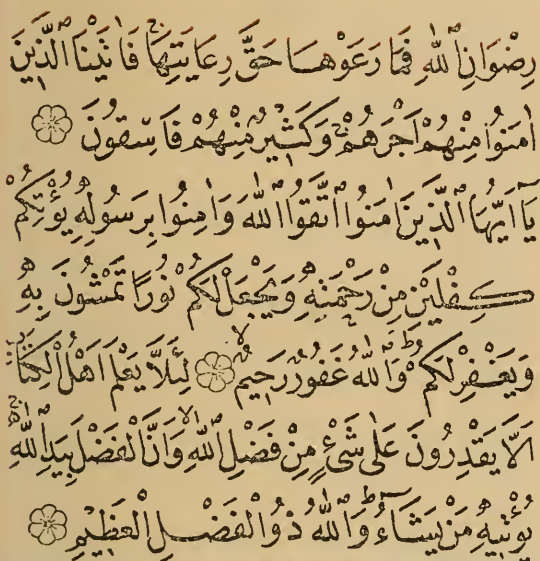 رِضْوَانِ اللّٰهِ فَمَا رَعَوْهَا حَقَّ رِعَايَتِهَا ۚ فَاٰتَيْنَا الَّذِينَ
اٰمَنُوا مِنْهُمْ اَجْرَهُمْ ۚ وَكَثِيرٌ مِنْهُمْ فَاسِقُونَ ۝
يَآ اَيُّهَا الَّذِينَ اٰمَنُوا اتَّقُوا اللّٰهَ وَاٰمِنُوا بِرَسُولِهِ يُؤْتِكُمْ
كِفْلَيْنِ مِنْ رَحْمَتِهِ وَيَجْعَلْ لَكُمْ نُورًا تَمْشُونَ بِهِ
وَيَغْفِرْ لَكُمْ ۭ وَاللّٰهُ غَفُورٌ رَحِيمٌ ۝ لِئَلَّا يَعْلَمَ اَهْلُ الْكِتَابِ
اَلَّا يَقْدِرُونَ عَلٰى شَىْءٍ مِنْ فَضْلِ اللّٰهِ وَاَنَّ الْفَضْلَ بِيَدِ اللّٰهِ
يُؤْتِيهِ مَنْ يَشَآءُ ۭ وَاللّٰهُ ذُو الْفَضْلِ الْعَظِيمِ ۝